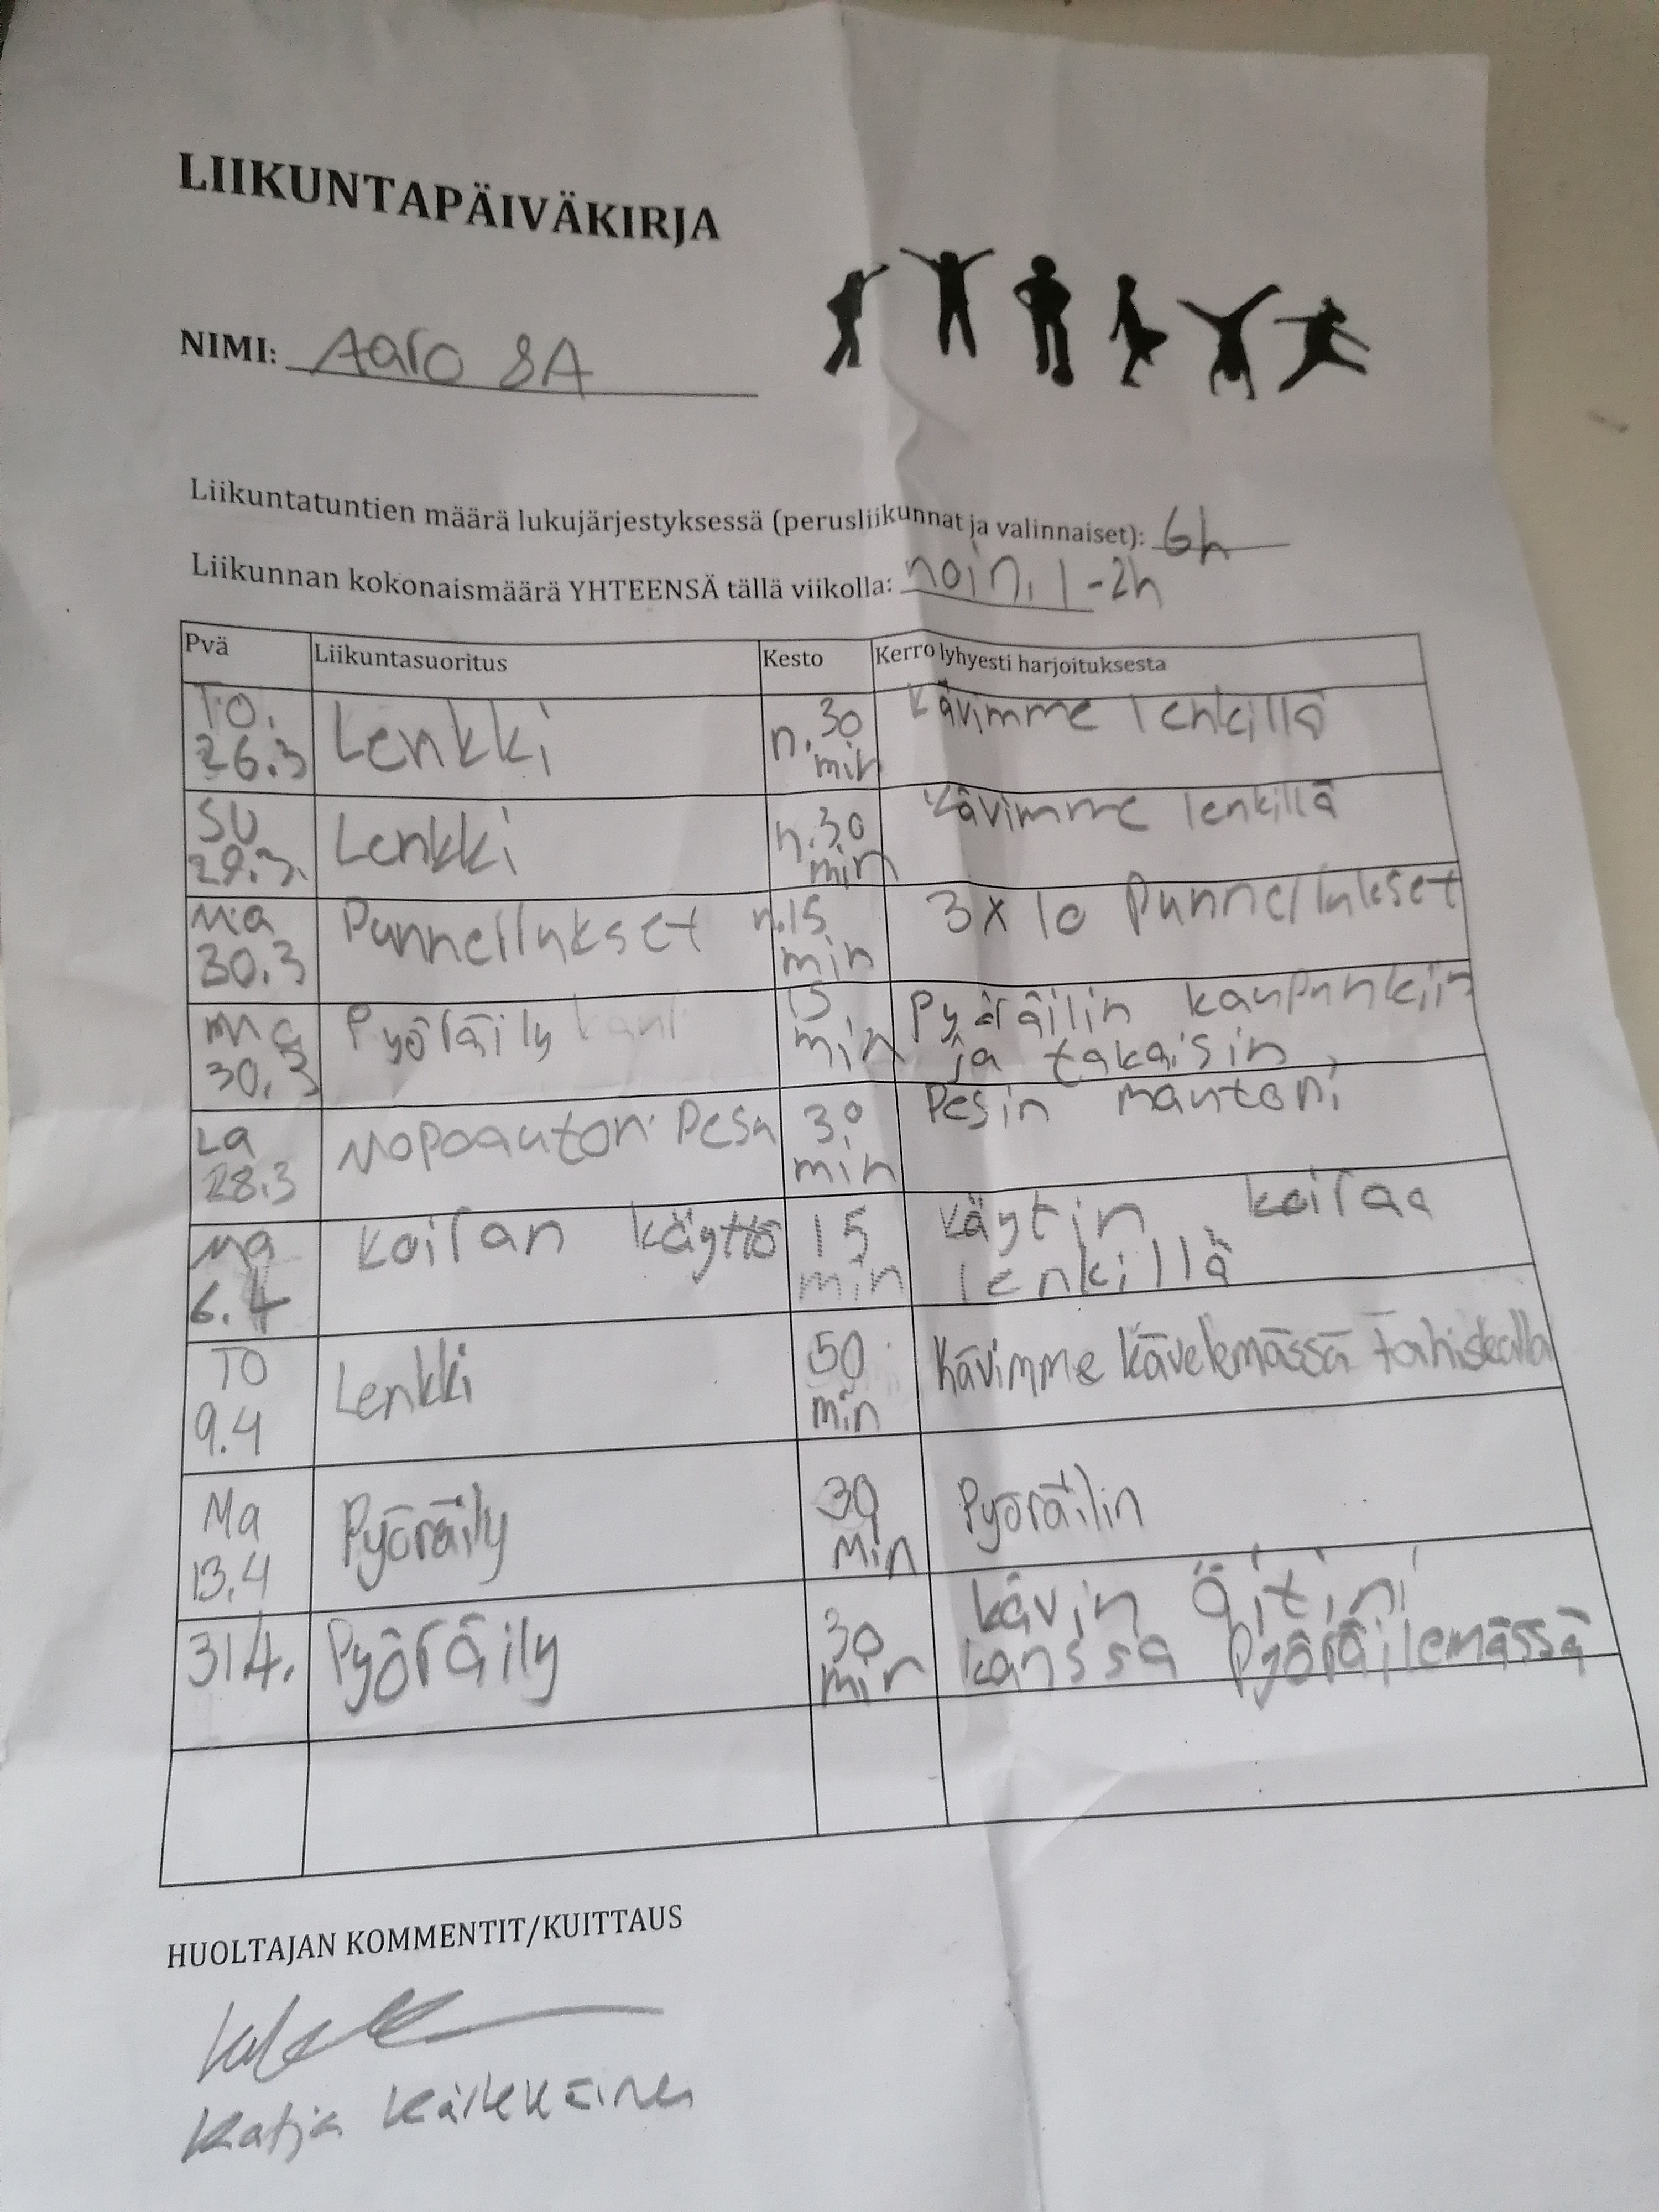 LIIKUNTAPÄIVÄKIRJA
NIMI: Aaro 8A
Liikuntatuntien määrä lukujärjestyksessä (perusliikunnat ja valinnaiset): 6h
Liikunnan kokonaismäärä YHTEENSÄ tällä viikolla: noin. 1-2h
Pvä Liikuntasuoritus Kesto Kerro lyhyesti harjoituksesta
TO. 26.3 Lenkki n.30 min Kävimme lenkillä
SU 29.3. Lenkki n.30 min Kävimme lenkillä
Ma 30.3 Punnellukset n.15 min 3x10 Punnellukset
ma 30.3 Pyöräily 15 min Pyöräilin kaupunkiin
ja takaisin
La 28.3 Mopoauton Pesu 30 min Pesin mautoni
Ma 6.4 koiran käyttö 15 min käytin koiraa
lenkillä
TO 9.4 Lenkki 50 min Kävimme kävelemässä
Ma 13.4 Pyöräily 30 min Pyöräilin
314. Pyöräily 30 min kävin äitini
kanssa Pyöräilemässä
HUOLTAJAN KOMMENTIT/KUITTAUS
Katja Kärkkäinen